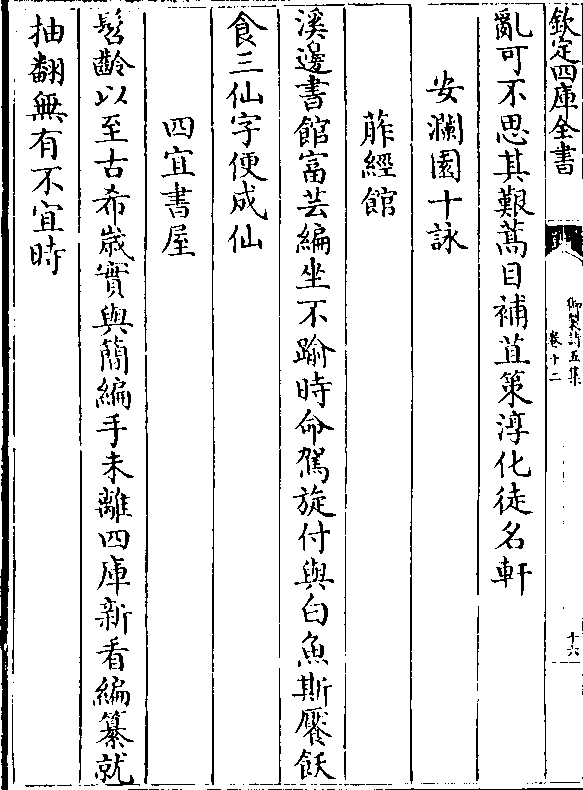 欽定四庫全書
御製詩五集
卷十二
十六
亂可不思其艱蒿目補苴策淳化徒名軒
安瀾園十詠
葄經館
溪邊書館富芸編坐不踰時命駕旋付與白魚斯饜飫
食三仙字便成仙
四宜書屋
髫齡以至古希歲實與簡編手未離四庫新看編纂就
抽翻無有不宜時